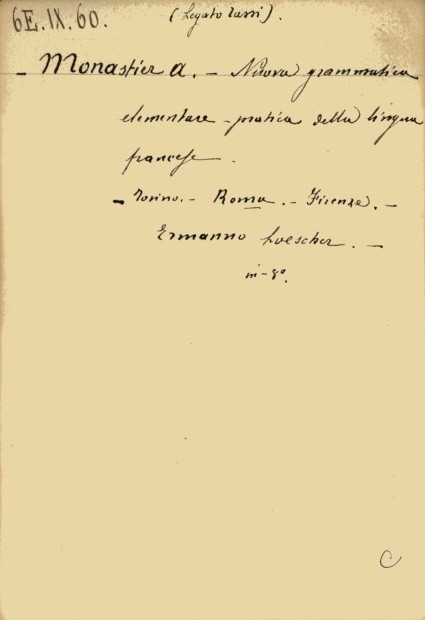 6E.IX.60.
(Legato Tassi).
- Monastier A. - Nuova grammatica
elementare - pratica della lingua
francese.
- Torino. - Roma. - Firenze. -
Ermanno Loescher. -
in-8º.
C